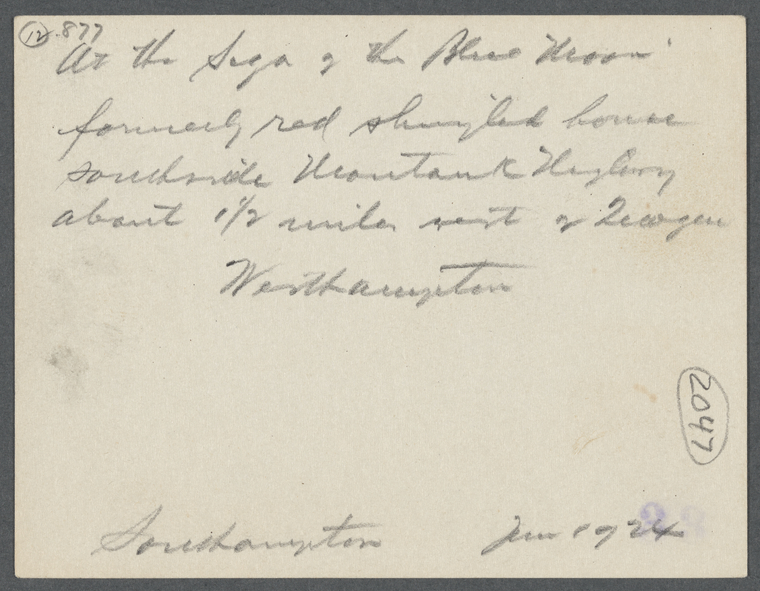 12 .877
At the Sign of the Blue Moon
formerly red shingled house
southside Montauk Highway
about 1 1/2 miles west of Quogue
Westhampton
2047
Southampton Jun 1924